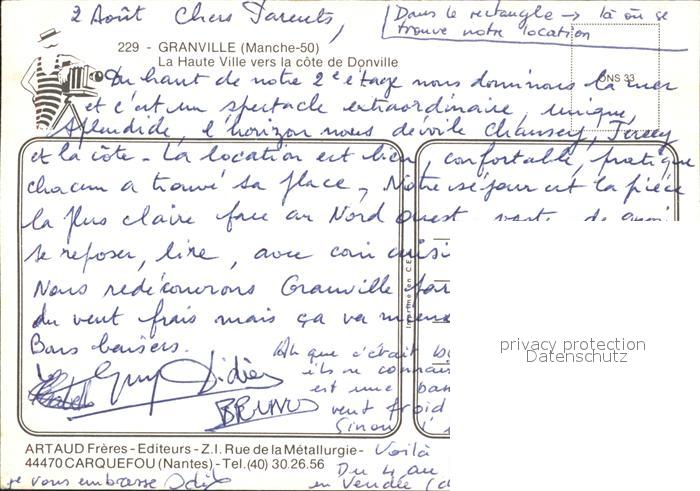 2 Août Chers Parents,
Dans le rectangle → là où se
trouve notre location
229 - GRANVILLE (Manche-50)
La Haute Ville vers la côte de Donville
ONS 33
Du haut de notre 2e étage nous dominons la mer
et c'est un spectacle extraordinaire, unique,
splendide, l'horizon nous dévoile Chausey, Jersey
et la côte - La location est bien, confortable, pratique
chacun a trouvé sa place, Notre séjour est la pièce
la plus claire face au Nord ouest vaste de quoi
se reposer, lire, avec coin cuisi
Nous redécouvrons Granville par
du vent frais mais ça va mieux
Bons baisers.
Guy Didier
BRUNO
Imprimé en C.E.
Ah que c'était
ils ne connais
est une
vent froid
Sinon
Voilà
Du 4 au
en Vendée
ARTAUD Frères - Editeurs - Z.I. Rue de la Métallurgie-
44470 CARQUEFOU (Nantes) - Tel. (40) 30.26.56
je vous embrasse Odile
privacy protection
Datenschutz